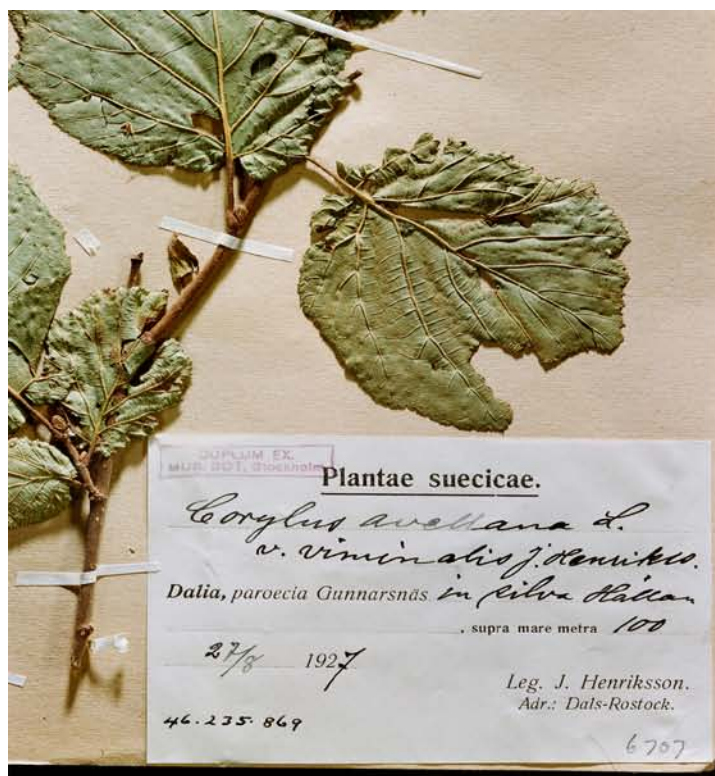 DUPLUM EX.
MUS. BOT. Stockholm
Plantae suecicae.
Corylus avellana L.
v. viminalis J. Henrikss.
Dalia, paroecia Gunnarsnäs in silva Hällan
, supra mare metra 100
27/8 1927
Leg. J. Henriksson.
Adr.: Dals-Rostock.
46.235.869
6707